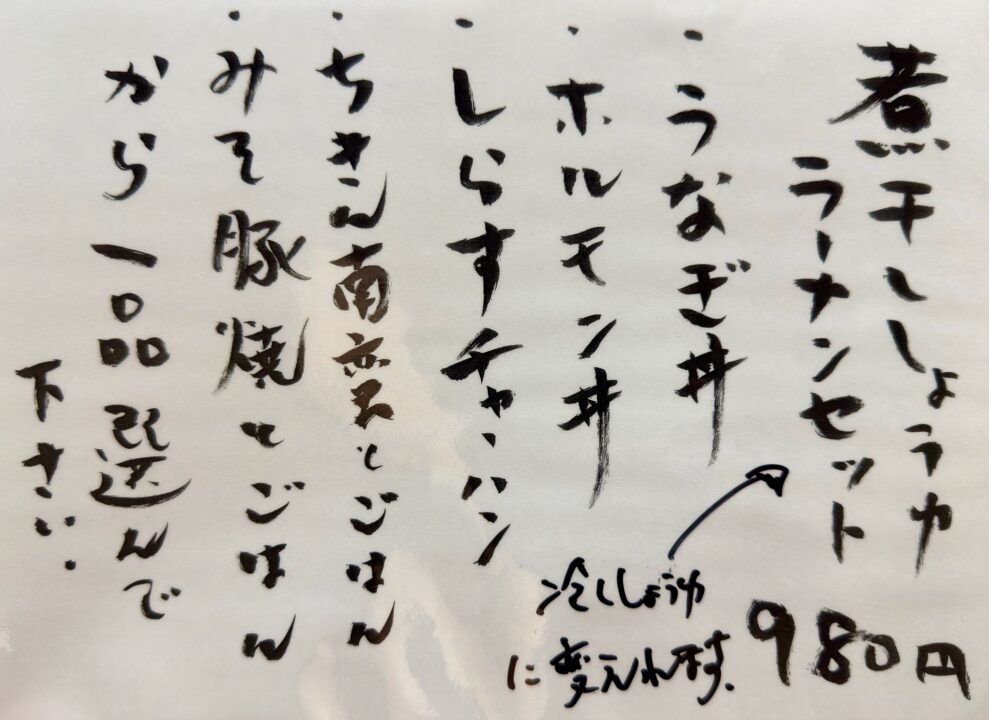 煮干ししょうゆ
ラーメンセット
980円
冷ししょうゆ
に変えれます.
・うなぎ丼
・ホルモン丼
・しらすチャーハン
・ちきん南蛮とごはん
・みそ豚焼とごはん
から一品選んで
下さい.